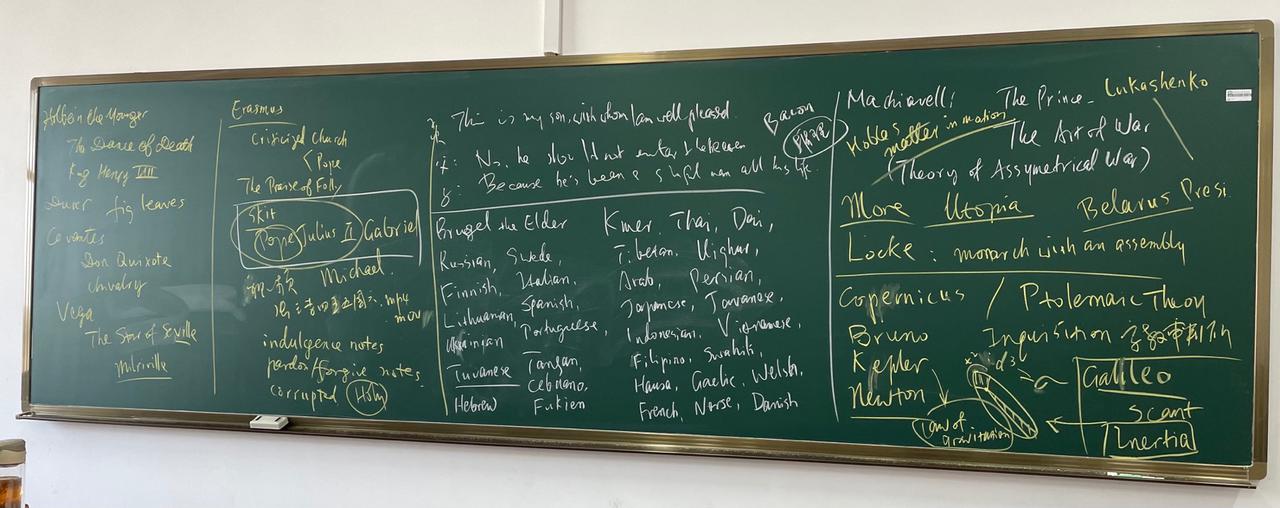 Holbein the Younger
The Dance of Death
King Henry VIII
Durer fig leaves
Cevantes
Don Quixote
chivalry
Vega
The Star of Seville
Erasmus
Criticized church
Pope
The Praise of Folly
Skit
Pope Julius II Gabriel
Michael.
.mp4
mov
indulgence notes
pardon/forgive notes
corrupted Holy
This is my son, with whom I am well pleased.
: No, he should not enter
: Because he's been a sinful man all his life.
Bacon
Brugel the Elder
Russian, Swede,
Finnish, Italian,
Lithuanian, Spanish,
Ukrainian Portuguese,
Tuvanese Tongan,
Cebuano,
Hebrew Fukien
Kmer, Thai, Dai,
Tibetan, Uighur,
Arab, Persian,
Japanese, Javanese,
Indonesian, Vietnamese,
Filipino, Swahili,
Hausa, Gaelic, Welsh,
French, Norse, Danish
Machiavelli The Prince Lukashenko
Hobbes matter in motion The Art of War
(Theory of Assymetrical War)
More Utopia Belarus Presi.
Locke: monarch with an assembly
Copernicus / Ptolemaic Theory
Bruno Inquisition
Kepler
Galileo
Newton
scant
Law of gravitation
Inertia